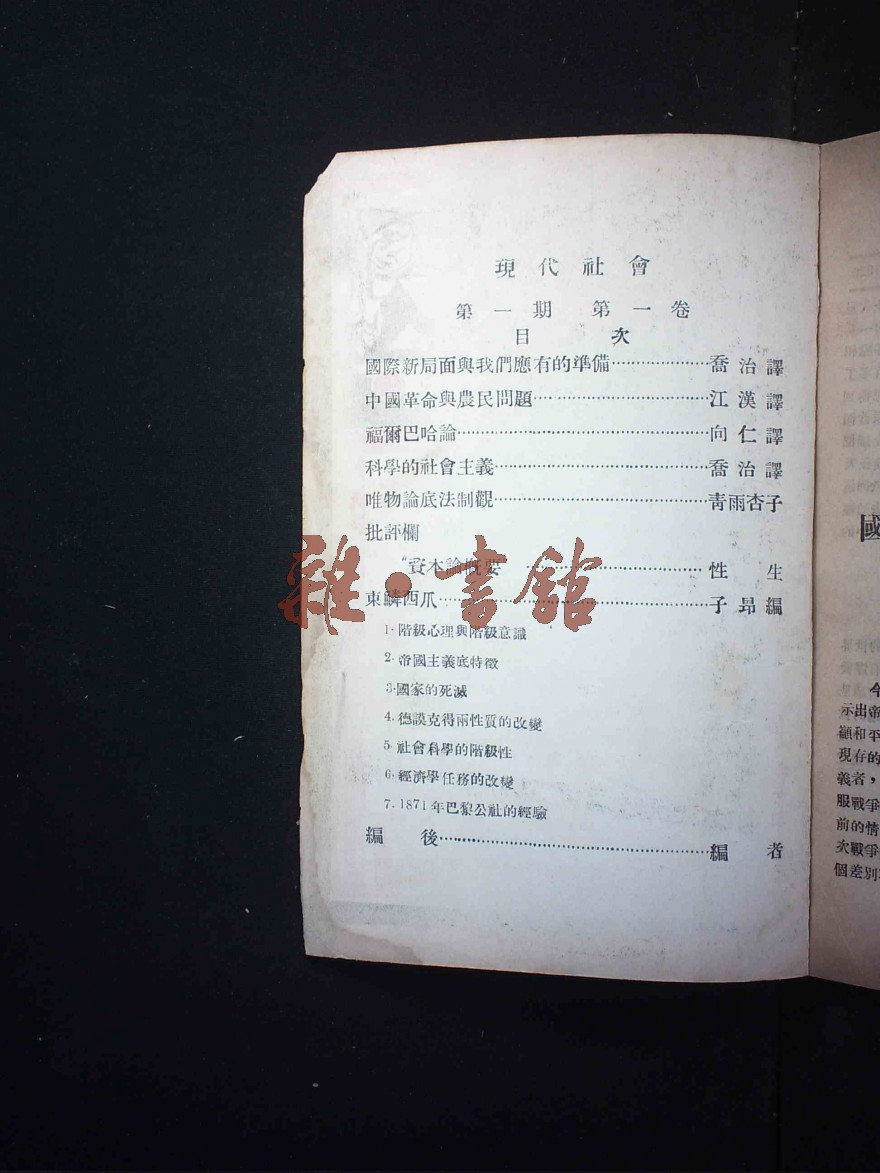 現代社會
第一期 第一卷
目次
國際新局面與我們應有的準備……………喬治譯
中國革命與農民問題……………江漢譯
福爾巴哈論……………向仁譯
科學的社會主義……………喬治譯
唯物論底法制觀……………靑雨杏子
批評欄
“資本論概要……………性生
東鱗西爪……………子昂編
1. 階級心理與階級意識
2. 帝國主義底特徵
3. 國家的死滅
4. 德謨克得兩性質的改變
5. 社會科學的階級性
6. 經濟學任務的改變
7. 1871年巴黎公社的經驗
編後……………編者
雜·書館
國
今
示出帝
顧和平
現存的
義者，
服戰爭
前的情
次戰爭
個差別